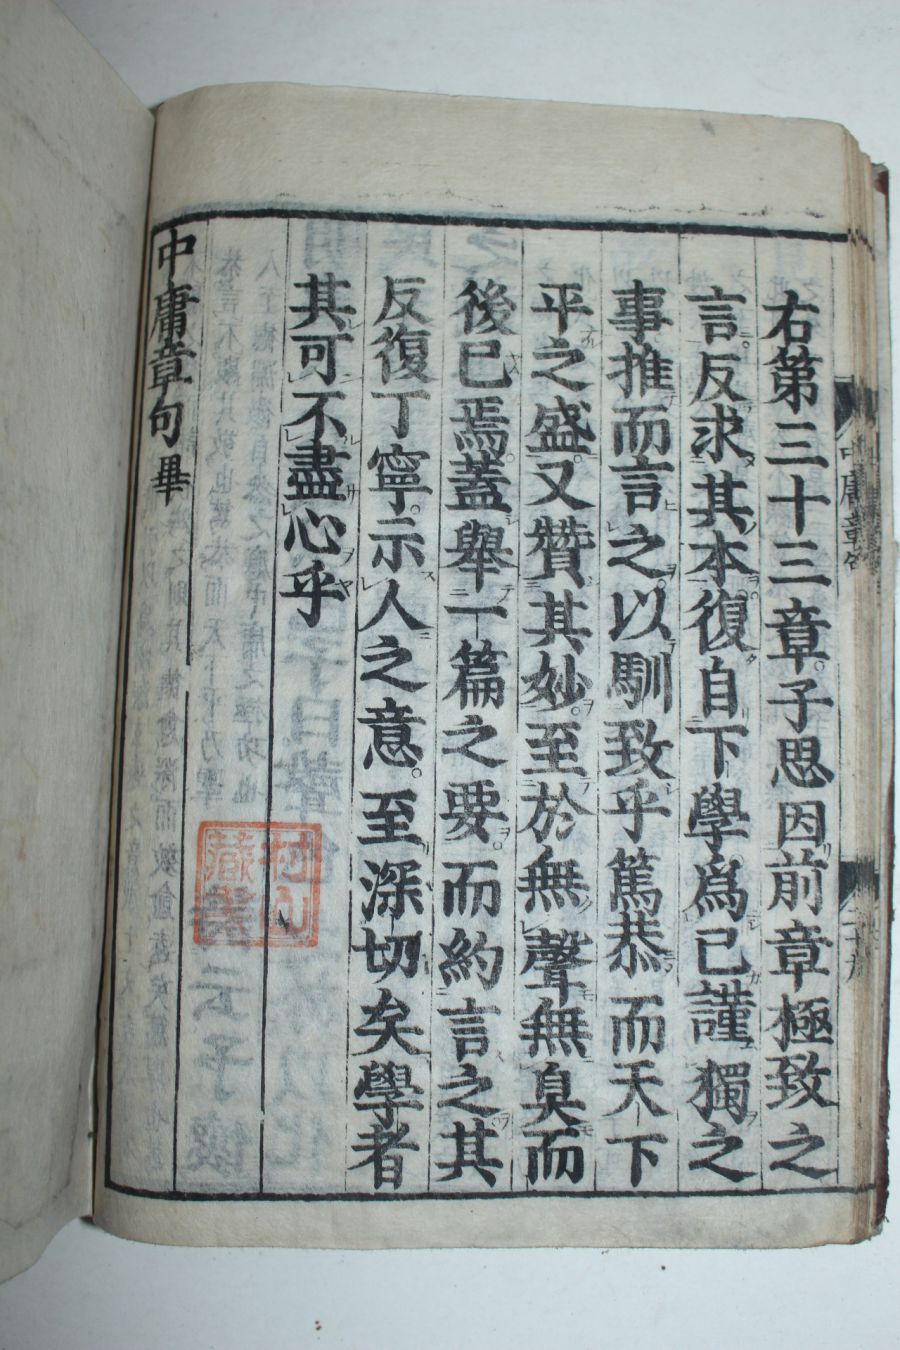 右第三十三章。子思因前章極致之
言反求其本復自下學爲己謹獨之
事推而言之。以馴致乎篤恭而天下
平之盛。又贊其妙。至於無聲無臭而
後已焉。蓋舉一篇之要。而約言之。其
反復丁寧。示人之意。至深切矣學者
其可不盡心乎
中庸章句畢
村山
藏書
中庸章句